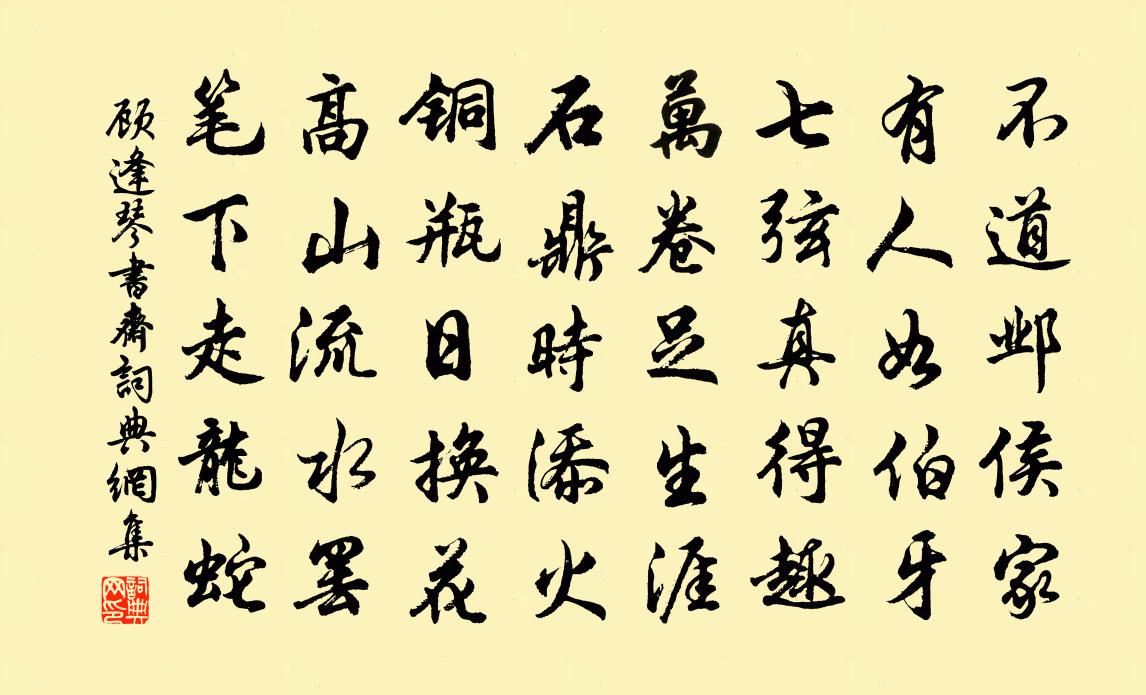 不道邺侯家
有人如伯牙
七弦真得趣
萬卷足生涯
石鼎時添火
铜瓶日换花
高山流水罢
笔下走龍蛇
顾逢琴書斋詞典網集
詞典网印